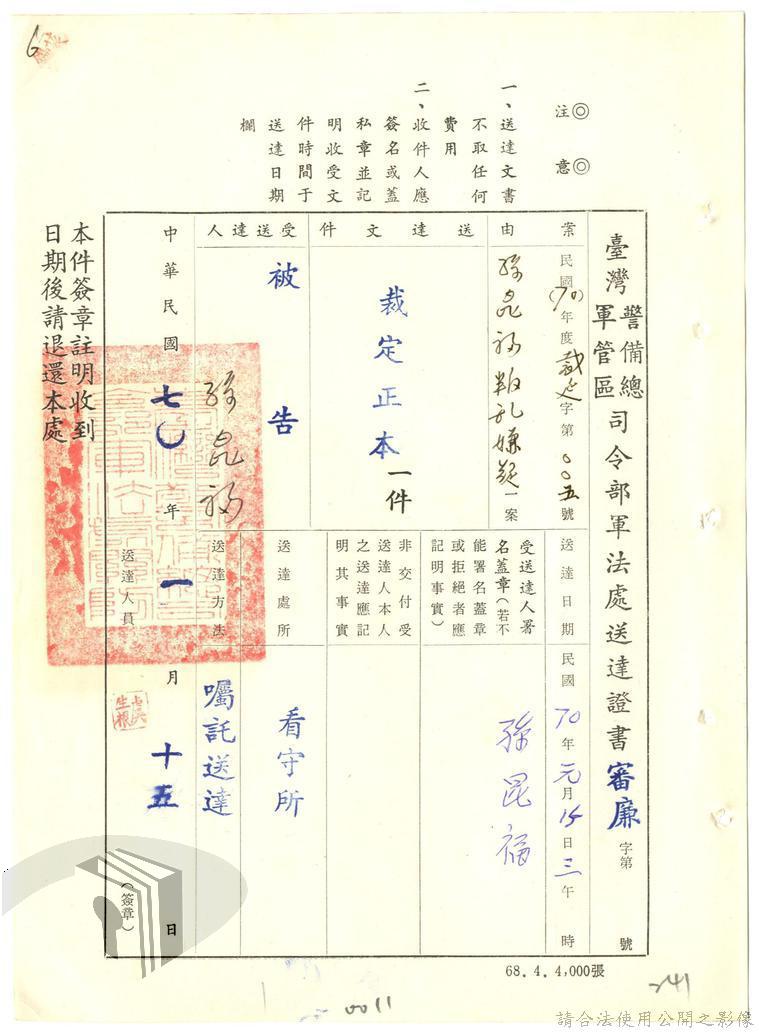 注意
一、送達文書不取任何費用
二、收件人應簽名或蓋私章並記明收受文件時間于送達日期欄
臺灣警備總軍管區司令部軍法處送達證書 審廉 字第 號
案由
民國(70)年度裁定字第〇〇五號
孫昆福叛乱嫌疑一案
送達文件
裁定正本一件
受送達人
被告
孫昆福
送達日期
民國70年元月15日三午 時
受送達人署名蓋章(若不能署名蓋章或拒絕者應記明事實)
孫昆福
非交付受送達人本人之送達應記明其事實
送達處所
看守所
送達方法
囑託送達
中華民國七〇年一月十五日
送達人員
(簽章)
本件簽章註明收到日期後請退還本處
68.4.4,000張
241
0011
請合法使用公開之影像